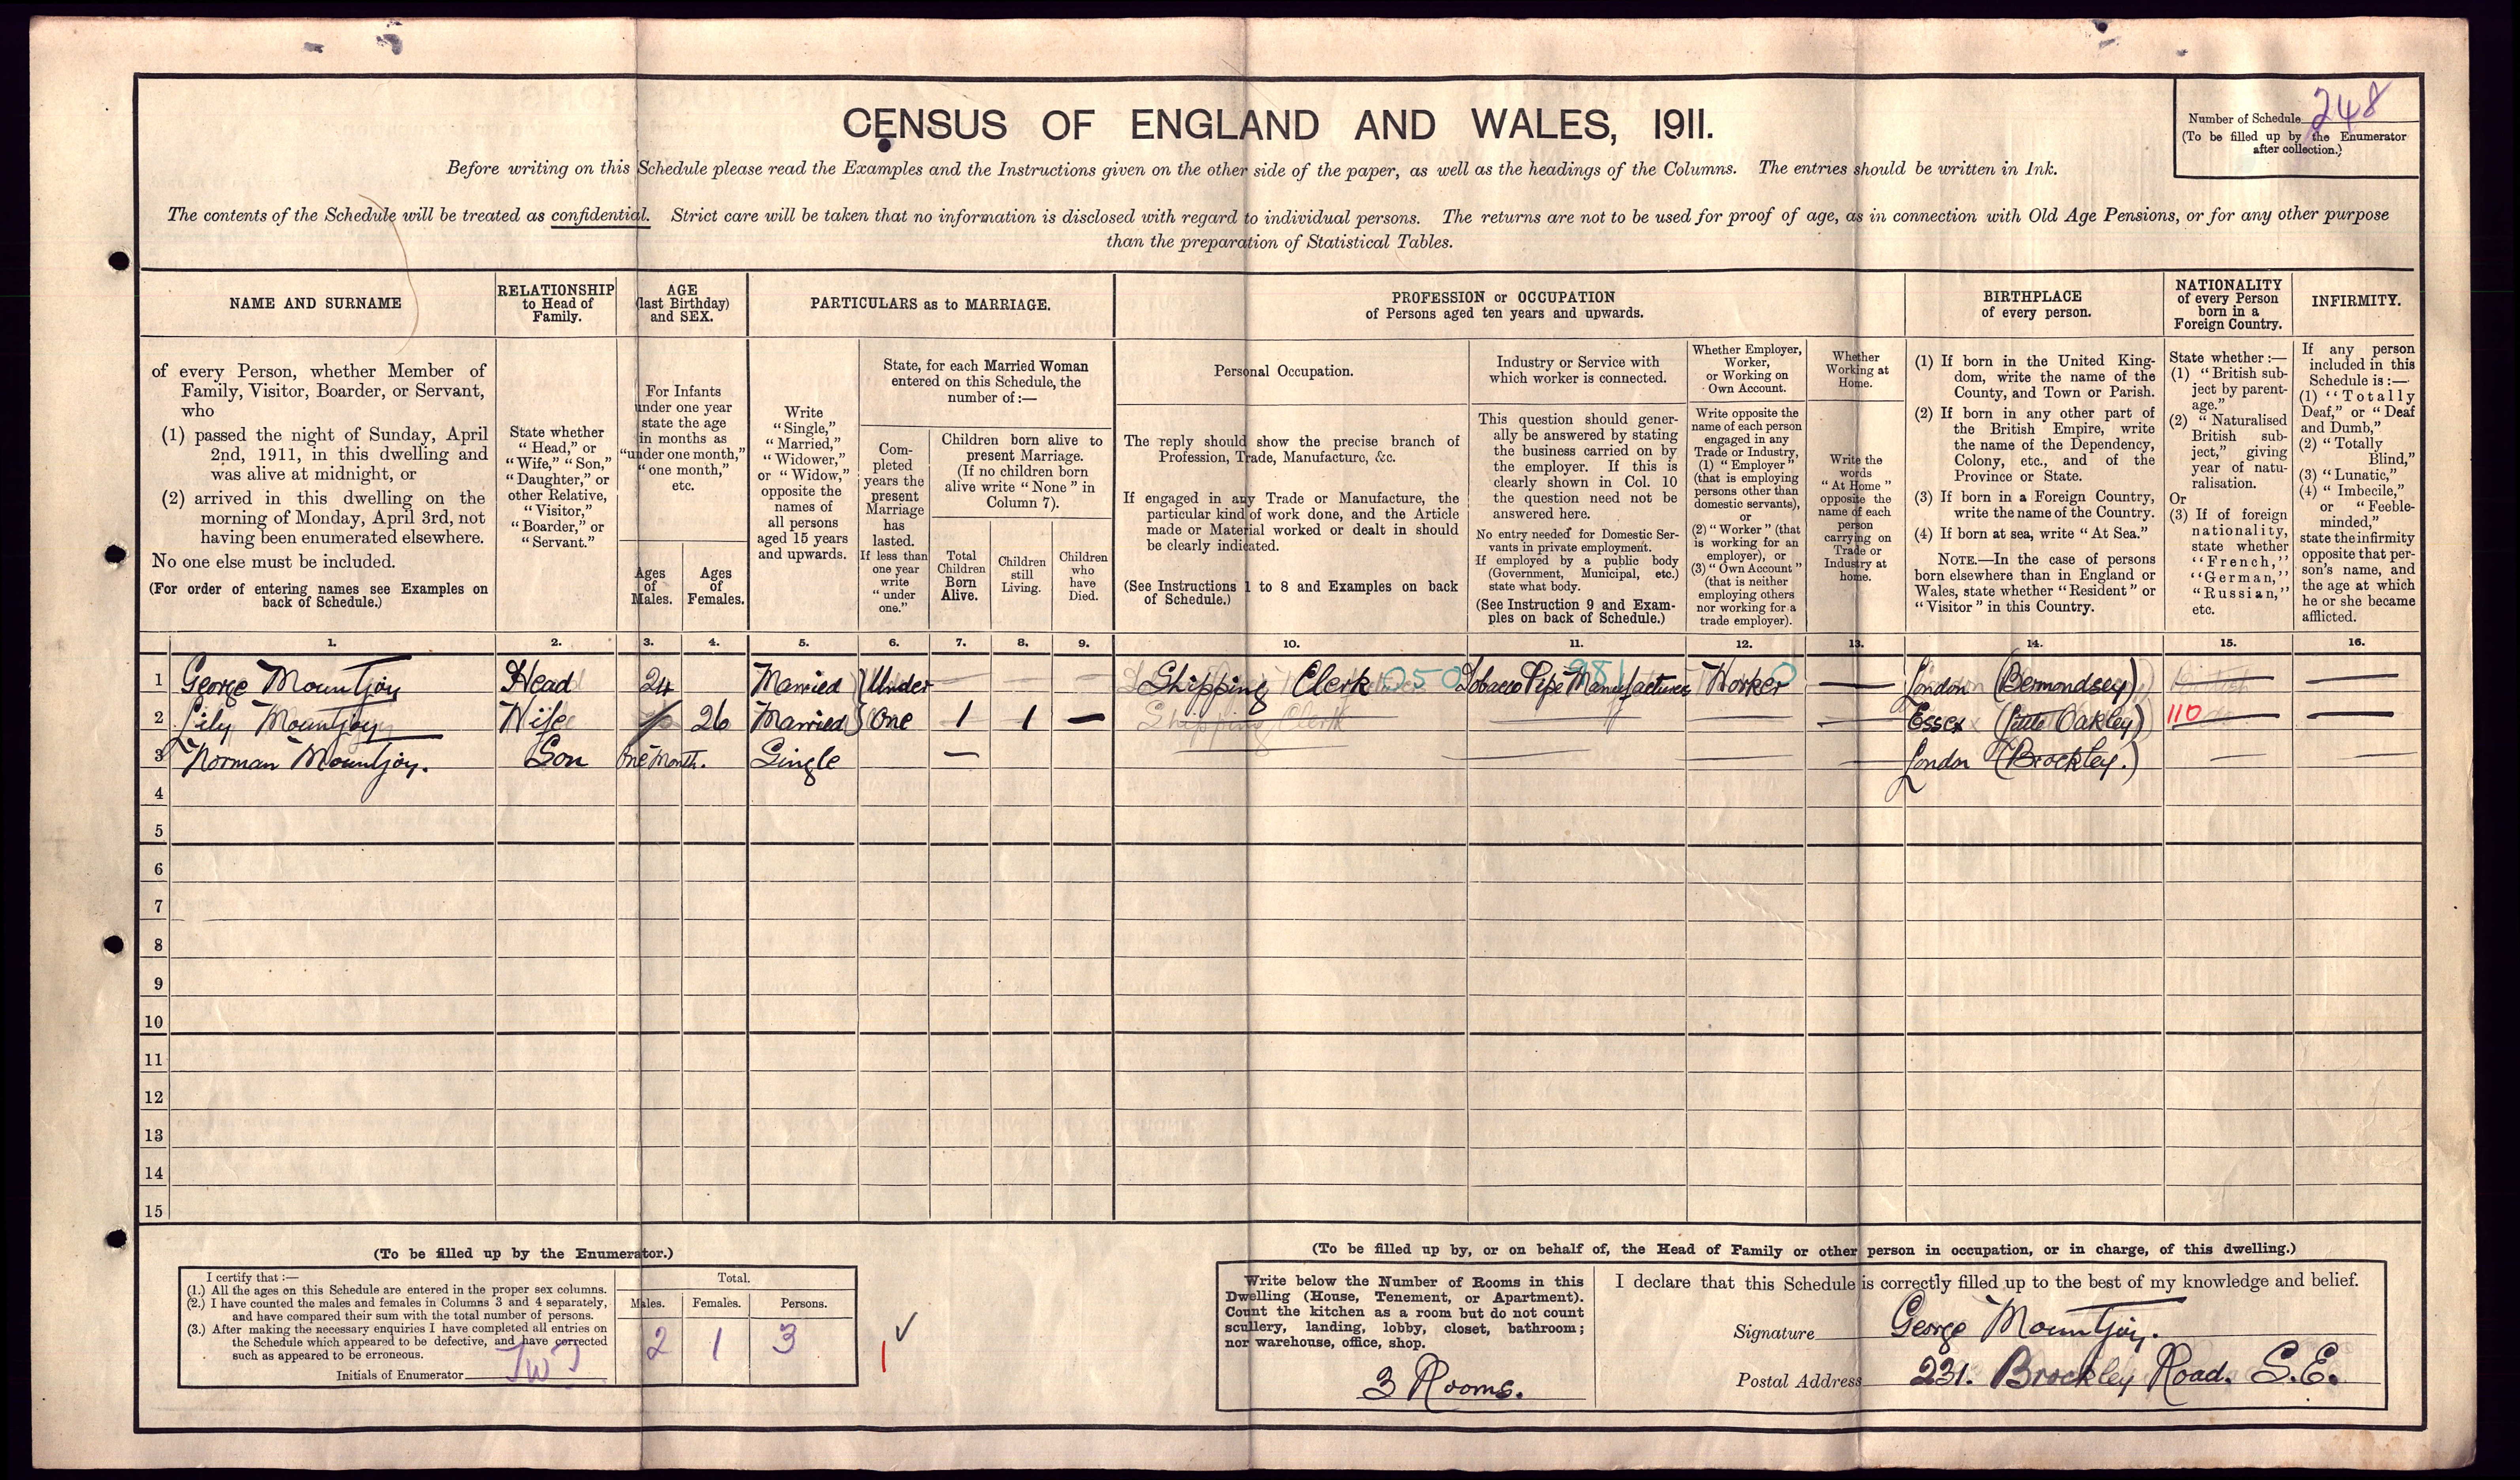 CENSUS OF ENGLAND AND WALES, 1911.
Number of Schedule 248
(To be filled up by the Enumerator
after collection.)
Before writing on this Schedule please read the Examples and the Instructions given on the other side of the paper, as well as the headings of the Columns. The entries should be written in Ink.
The contents of the Schedule will be treated as confidential. Strict care will be taken that no information is disclosed with regard to individual persons. The returns are not to be used for proof of age, as in connection with Old Age Pensions, or for any other purpose
than the preparation of Statistical Tables.
NAME AND SURNAME
RELATIONSHIP
to Head of
Family.
AGE
(last Birthday)
and SEX.
PARTICULARS as to MARRIAGE.
PROFESSION or OCCUPATION
of Persons aged ten years and upwards.
BIRTHPLACE
of every person.
NATIONALITY
of every Person
born in a
Foreign Country.
INFIRMITY.
of every Person, whether Member of
Family, Visitor, Boarder, or Servant,
who
(1) passed the night of Sunday, April
2nd, 1911, in this dwelling and
was alive at midnight, or
(2) arrived in this dwelling on the
morning of Monday, April 3rd, not
having been enumerated elsewhere.
No one else must be included.
(For order of entering names see Examples on
back of Schedule.)
State whether
"Head," or
"Wife," "Son,"
"Daughter," or
other Relative,
"Visitor,"
"Boarder," or
"Servant."
For Infants
under one year
state the age
in months as
"under one month,"
"one month,"
etc.
Ages
of
Males.
Ages
of
Females.
Write
"Single,"
"Married,"
"Widower,"
or "Widow,"
opposite the
names of
all persons
aged 15 years
and upwards.
State, for each Married Woman
entered on this Schedule, the
number of:—
Com-
pleted
years the
present
Marriage
has
lasted.
If less than
one year
write
"under
one."
Children born alive to
present Marriage.
(If no children born
alive write "None" in
Column 7).
Total
Children
Born
Alive.
Children
still
Living.
Children
who
have
Died.
Personal Occupation.
The reply should show the precise branch of
Profession, Trade, Manufacture, &c.
If engaged in any Trade or Manufacture, the
particular kind of work done, and the Article
made or Material worked or dealt in should
be clearly indicated.
(See Instructions 1 to 8 and Examples on back
of Schedule.)
Industry or Service with
which worker is connected.
This question should gener-
ally be answered by stating
the business carried on by
the employer. If this is
clearly shown in Col. 10
the question need not be
answered here.
No entry needed for Domestic Ser-
vants in private employment.
If employed by a public body
(Government, Municipal, etc.)
state what body.
(See Instruction 9 and Exam-
ples on back of Schedule.)
Whether Employer,
Worker,
or Working on
Own Account.
Write opposite the
name of each person
engaged in any
Trade or Industry,
(1) "Employer"
(that is employing
persons other than
domestic servants),
or
(2) "Worker" (that
is working for an
employer), or
(3) "Own Account"
(that is neither
employing others
nor working for a
trade employer).
Whether
Working at
Home.
Write the
words
"At Home"
opposite the
name of each
person
carrying on
Trade or
Industry at
home.
(1) If born in the United King-
dom, write the name of the
County, and Town or Parish.
(2) If born in any other part of
the British Empire, write
the name of the Dependency,
Colony, etc., and of the
Province or State.
(3) If born in a Foreign Country,
write the name of the Country.
(4) If born at sea, write "At Sea."
NOTE.—In the case of persons
born elsewhere than in England or
Wales, state whether "Resident" or
"Visitor" in this Country.
State whether:—
(1) "British sub-
ject by parent-
age."
(2) "Naturalised
British sub-
ject," giving
year of natu-
ralisation.
Or
(3) If of foreign
nationality,
state whether
"French,"
"German,"
"Russian,"
etc.
If any person
included in this
Schedule is:—
(1) "Totally
Deaf," or "Deaf
and Dumb,"
(2) "Totally
Blind,"
(3) "Lunatic,"
(4) "Imbecile,"
or "Feeble-
minded,"
state the infirmity
opposite that per-
son's name, and
the age at which
he or she became
afflicted.
1. 2. 3. 4. 5. 6. 7. 8. 9. 10. 11. 12. 13. 14. 15. 16.
1 George Mountjoy Head 24 Married Under Shipping Clerk 050 Tobacco Pipe Manufacturers 981 Worker 0 — London (Bermondsey)
2 Lily Mountjoy Wife 26 Married One 1 1 — Shipping Clerk — Essex (Little Oakley) 110 —
3 Norman Mountjoy. Son One Month. Single — London (Brockley.) —
4
5
6
7
8
9
10
11
12
13
14
15
(To be filled up by the Enumerator.)
I certify that:—
(1.) All the ages on this Schedule are entered in the proper sex columns.
(2.) I have counted the males and females in Columns 3 and 4 separately,
and have compared their sum with the total number of persons.
(3.) After making the necessary enquiries I have completed all entries on
the Schedule which appeared to be defective, and have corrected
such as appeared to be erroneous.
Initials of Enumerator
Total.
Males. Females. Persons.
2 1 3
(To be filled up by, or on behalf of, the Head of Family or other person in occupation, or in charge, of this dwelling.)
Write below the Number of Rooms in this
Dwelling (House, Tenement, or Apartment).
Count the kitchen as a room but do not count
scullery, landing, lobby, closet, bathroom;
nor warehouse, office, shop.
3 Rooms.
I declare that this Schedule is correctly filled up to the best of my knowledge and belief.
Signature George Mountjoy.
Postal Address 231. Brockley Road. S.E.